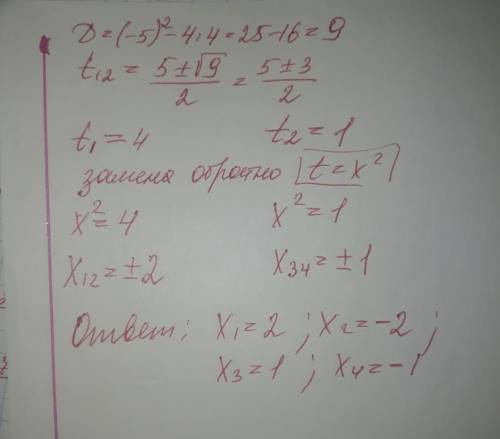 D=(-5)²-4·4=25-16=9
t₁₂ = 5±√9/2 = 5±3/2
t₁=4 t₂=1
замена обратно t=x²
x²=4 x²=1
x₁₂=±2 x₃₄=±1
Ответ: x₁=2 ; x₂=-2 ;
x₃=1 ; x₄=-1